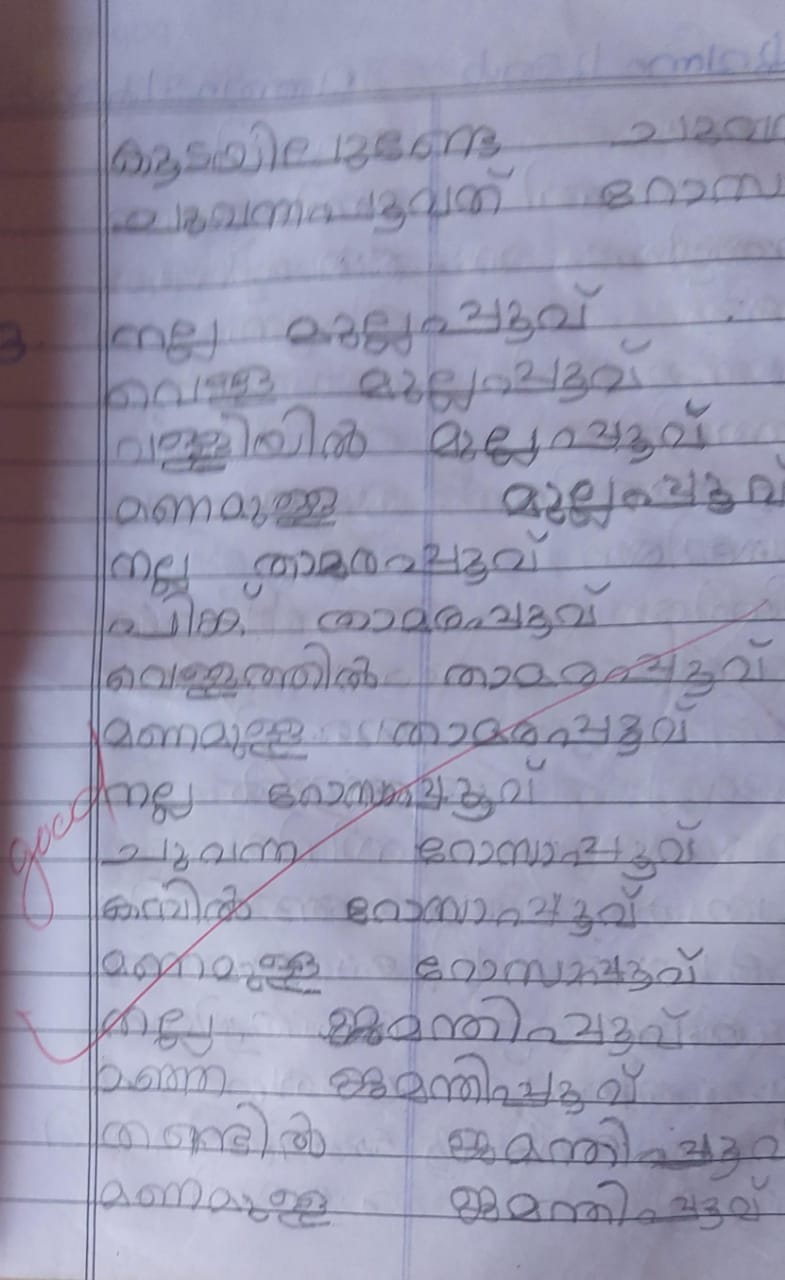 ചുവന്നപൂവത് റോസ
3 നല്ല മുല്ലപ്പൂവ്
വെള്ള മുല്ലപ്പൂവ്
വള്ളിയിൽ മുല്ലപ്പൂവ്
മണമുള്ള മുല്ലപ്പൂവ്
നല്ല താമരപ്പൂവ്
പിങ്ക് താമരപ്പൂവ്
വെള്ളത്തിൽ താമരപ്പൂവ്
മണമുള്ള താമരപ്പൂവ്
good നല്ല റോസാപ്പൂവ്
ചുവന്ന റോസാപ്പൂവ്
കമ്പിൽ റോസാപ്പൂവ്
മണമുള്ള റോസാപ്പൂവ്
നല്ല ജമന്തിപ്പൂവ്
മഞ്ഞ ജമന്തിപ്പൂവ്
തണ്ടിൽ ജമന്തിപ്പൂ
മണമുള്ള ജമന്തിപ്പൂവ്